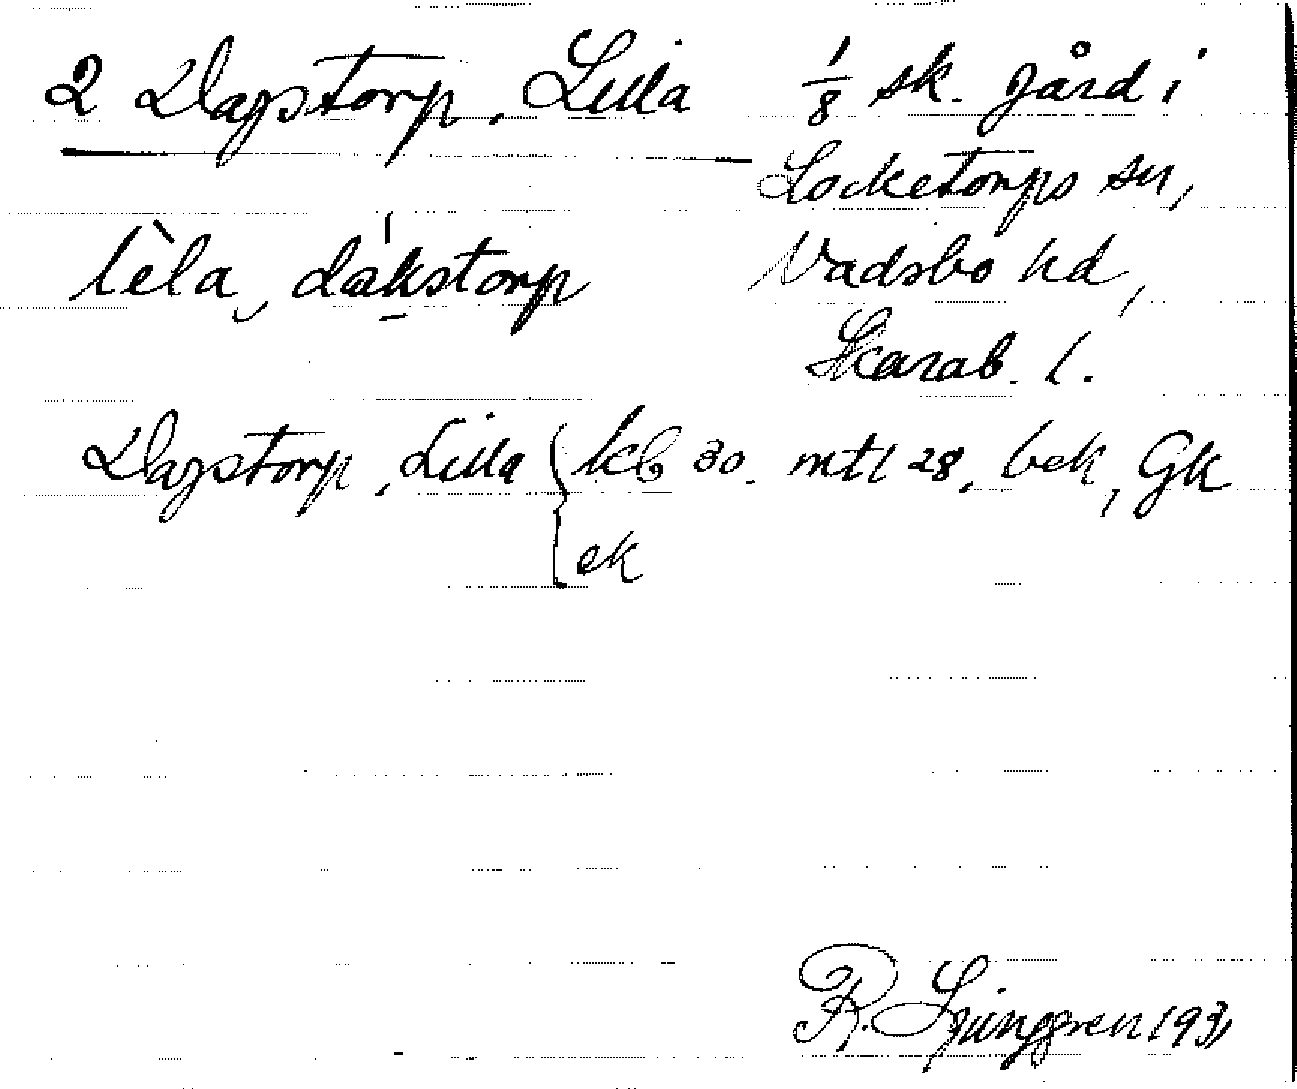 2 Dagstorp, Lilla 1/8 sk. gård i
Locketorps sn,
Vadsbo hd,
Skarab. l.
lèla, dákstorp
Dagstorp, Lilla { kb 30. mtl 28, bek, Gk
ek
R. Ljunggren 1931